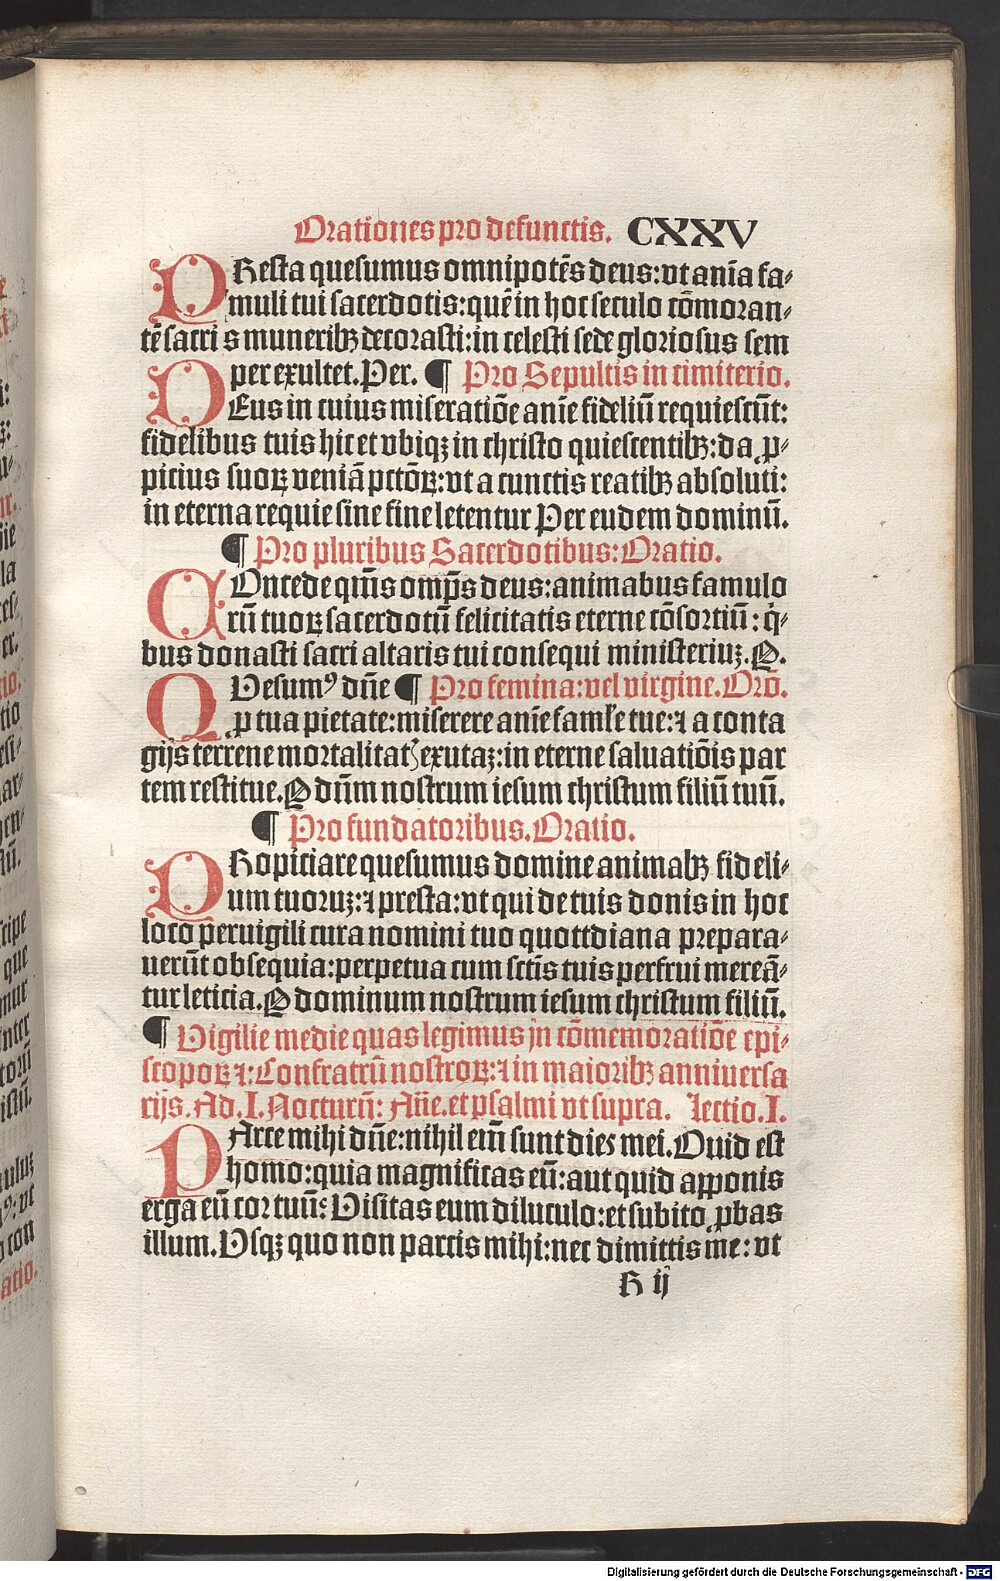 Orationes pro defunctis. CXXV
PResta quesumus omnipotēs deus: vt anīa fa⸗
muli tui sacerdotis: quē in hoc seculo cōmoran⸗
tē sacri s muneribꝫ decorasti: in celesti sede gloriosus sem
per exultet. Per. ¶ Pro Sepultis in cimiterio.
DEus in cuius miseratiōe anīe fideliū requiescūt:
fidelibus tuis hic et vbiqꝫ in christo quiescentibꝫ: da ꝓ⸗
picius suoꝝ veniā pctōꝝ: vt a cunctis reatibꝫ absoluti:
in eterna requie sine fine letentur Per eudem dominū.
¶ Pro pluribus Sacerdotibus: Oratio.
COncede qm̄s omp̄s deus: animabus famulo
rū tuoꝝ sacerdotū felicitatis eterne cōsortiū: q̇⸗
bus donasti sacri altaris tui consequi ministeriuꝫ. P.
QVesumꝰ dn̄e ¶ Pro femina: vel virgine. Orō.
ꝓ tua pietate: miserere anīe famƚe tue: ⁊ a conta
gijs terrene mortalitatꝭ exutaꝫ: in eterne saluatiōis par
tem restitue. P dūm nostrum iesum christum filiū tuū.
¶ Pro fundatoribus. Oratio.
PRopiciare quesumus domine animabꝫ fideli⸗
um tuoruꝫ: ⁊ presta: vt qui de tuis donis in hoc
loco peruigili cura nomini tuo quottdiana prepara⸗
uerūt obsequia: perpetua cum sctīs tuis perfrui mereā⸗
tur leticia. P dominum nostrum iesum christum filiū.
¶ Vigilie medie quas legimus jn cōmemoratiōe epi⸗
scopoꝝ ⁊: Confratrū nostroꝝ: ⁊ in maioribꝫ anniuersa
rijs. Ad. I. Nocturū: Añe. et psalmi vt supra. lectio. I.
PArce mihi dn̄e: nihil eīm sunt dies mei. Quid est
homo: quia magnificas eū: aut quid apponis
erga eū cor tuū: Visitas eum diluculo: et subito ꝓbas
illum. Vsqꝫ quo non parcis mihi: nec dimittis me: vt
H ij
Digitalisierung gefördert durch die Deutsche Forschungsgemeinschaft - DFG